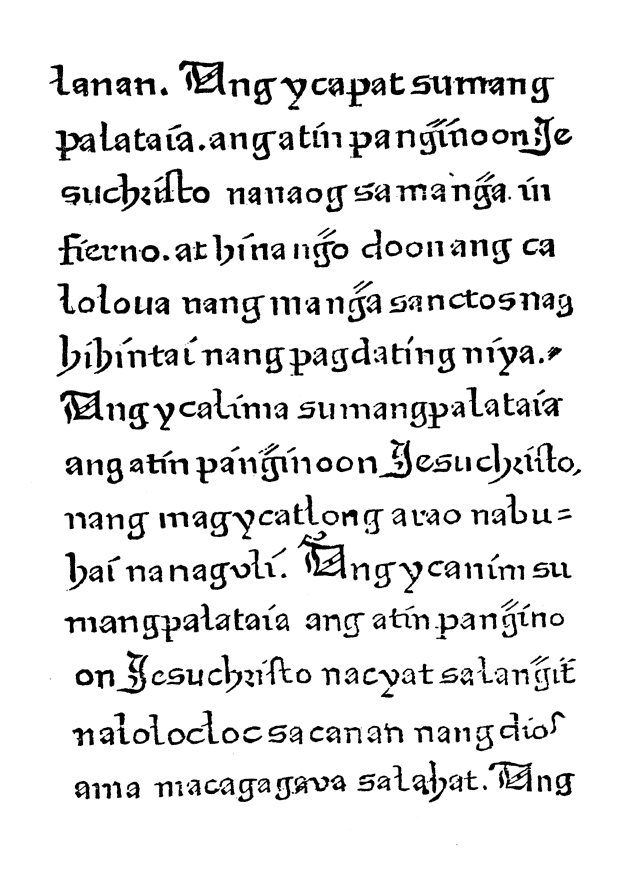 lanan. Ang ycapat sumang
palataía. ang atín pang̃ínoon Je
suchrísto nanaog sa mang̃a. ín
fierno. at hínang̃o doon ang ca
loloua nang mang̃a sanctos nag
hihíntaí nang pagdatíng níya.
Ang ycalíma sumangpalataía
ang atín páng̃ínoon Jesuchrísto,
nang magycatlong arao nabu=
haí na naguli. Ang ycaním su
mangpalataía ang atín pang̃íno
on Jesuchrísto nacyat sa lang̃it
nalolocloc sa canan nang dios
ama macagagava sa lahat. Ang